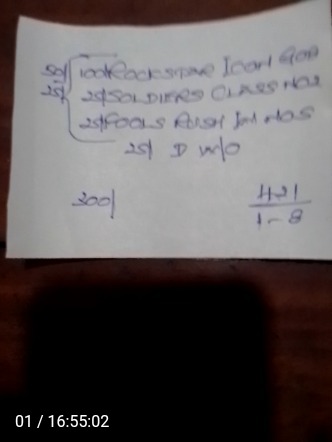 50/ 100/ ROCKSTAR ICON GOD
25/ 25/ SOLDIERS CLASS NO2
25/ FOOLS RUSH IN NO5
25/ D W/O
300/
421
1-8
01 / 16:55:02